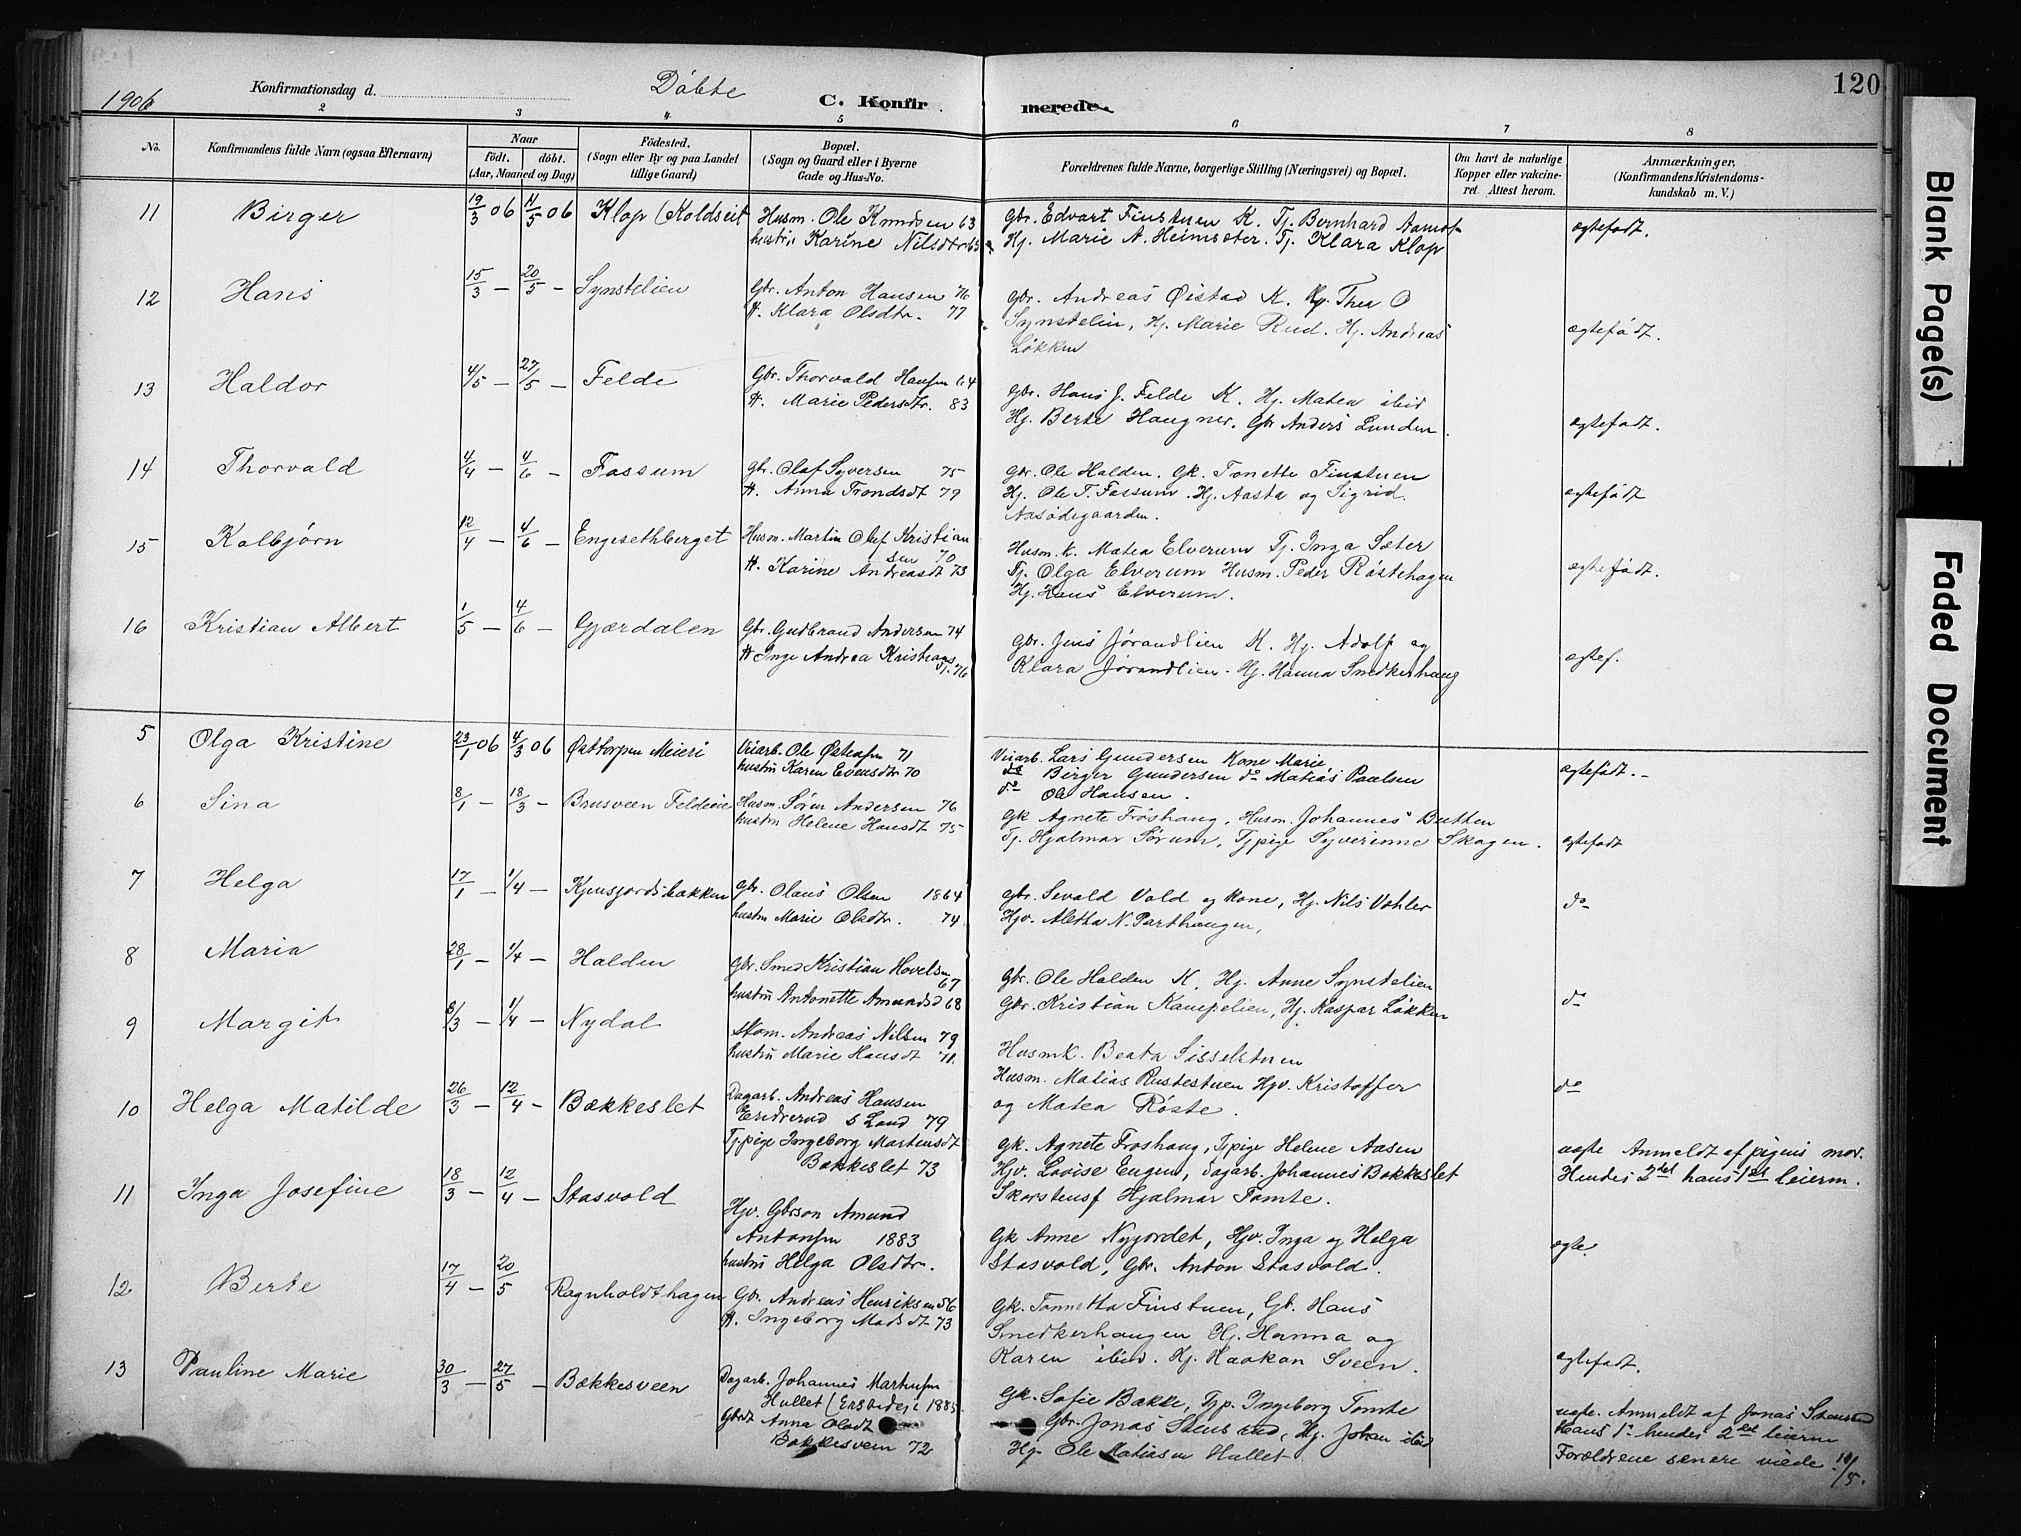 1906
Konfirmationsdag d.
Döbte
C. Konfir merede.
120
2 3 4 5 6 7 8
No.
Konfirmandens fulde Navn (ogsaa Efternavn)
Naar
født. döbt.
(Aar, Maaned og Dag)
Födested.
(Sogn eller By og paa Landet
tillige Gaard)
Bopæl.
(Sogn og Gaard eller i Byerne
Gade og Hus-No.
Forældrenes fulde Navne, borgerlige Stilling (Næringsvei) og Bopæl.
Om havt de naturlige
Kopper eller vakcine-
ret. Attest herom.
Anmærkninger,
(Konfirmandens Kristendoms-
kundskab m. V.)
11 Birger 19/3 06 11/5 06 Klop (Koldseit Husm. Ole Knudsen 63 Gbr. Edvart Finstuen K. Tj. Bernhard Aamot ægtefødt.
hustru Karine Nilsdtr 63 Hj. Marie A. Heimseter. Tj. Klara Klop
12 Hans 15/3 — 20/5 — Synstelien Gbr. Anton Hansen 76 Gbr. Andreas Øistad K. Hj. Thea O
H. Klara Olsdtr. 77 Synstelien, Hj. Marie Rud. Hj. Andreas ægtefødt.
Løkken
13 Haldor 4/5 — 27/5 — Felde Gbr. Thorvald Hansen 64 Gbr. Hans J. Felde K. Hj. Matea ibid
H. Marie Pedersdtr. 83 Hj. Berte Haugner. Gbr Anders Lunden. ægtefødt.
14 Thorvald 4/4 — 4/6 — Fossum Gbr. Olaf Syversen 75 Gbr. Ole Halden. Gk. Tonette Finstuen
H. Anna Trondsdt 79 Hj. Ole T. Fossum. Hj. Aasta og Sigrid. ægtefødt
Aasødegaarden.
15 Kolbjørn 12/4 — 4/6 — Engesethberget Husm. Martin Olaf Kristian Husm. K. Matea Elverum Tj. Inga Sæter
sen 70
H. Karine Andreasdt 73 Tj. Olga Elverum Husm. Peder Røstehagen ægtefødt.
Hj. Hans Elverum.
16 Kristian Albert 1/5 — 4/6 — Gjærdalen Gbr. Gudbrand Andersen 74 Gbr. Jens Jørandlien K. Hj. Adolf og
H Inge Andrea Kristians Klara Jørandlien. Hj. Hanna Smedkerhaug ægtef.
dt. 76
5 Olga Kristine 23/1 06 4/3 06 Østtorpen Meieri Veiarb. Ole Østensen 71 Veiarb. Lars Gundersen Kone Marie
hustru Karen Evensdtr 70 do Birger Gundersen do Matias Paulsen ægtefødt.
do Ole Hansen.
6 Sina 8/1 — 18/3 — Brusveen Feldeie Husm. Søren Andersen 76 Gk Agnete Frøshaug, Husm. Johannes Butten
hustru Helene Hansdt 75 Tj. Hjalmar Sørum, Tjpige Syverinne Skogen. ægtefødt
7 Helga 17/1 — 1/4 — Kjensjordsbakken Gbr. Olaus Olsen 1864 Gbr. Sevald Vold og Kone, Hj. Nils Vøhler do
hustru Marie Olsdtr. 74 Hjv. Aletha N. Parthaugen,
8 Maria 28/1 — 1/4 — Halden Gbr. Smed Kristian Hovelsn Gbr. Ole Halden K. Hj. Anne Synstelien
67
hustru Antonette Amundsd 68 Gbr. Kristian Kampelien, Hj. Kaspar Løkken do
9 Margit 8/3 — 1/4 — Nydal Skom. Andreas Nilsen 79 Husmk. Beata Sisselstuen
hustru Marie Hansdt 71. Husm. Matias Rustestuen Hjv. Kristoffer do
og Matea Røste.
10 Helga Matilde 26/3 — 12/4 — Bækkeslet Dagarb. Andreas Hansen
S Land 79
Tjpige Ingeborg Martensdt Gk. Agnete Frøshaug, Tjpige Helene Aasen uægte Anmeldt af pigens mor.
Bækkeslet 73 Hjv. Lovise Engen, Dagarb. Johannes Bækkeslet Hendes 2det hans 1st leierm.
Skorstensf Hjalmar Tomte.
11 Inga Josefine 18/3 — 12/4 — Stasvold Hjv. Gbrson Amund Gk Anne Nyjordet, Hjv. Inga og Helga ægte.
Antonsen 1883 Stasvold, Gbr. Anton Stasvold.
hustru Helga Olsdtr.
12 Berte 17/4 — 20/5 Ragnholdthagen Gbr. Andreas Henriksen 56 Gk. Tonnetta Finstuen, Gb. Hans
H. Ingeborg Madsdt 73 Smedkerhaugen Hj. Hanna og
Karen ibid. Hj. Haakon Sveen. ægtefødt.
13 Pauline Marie 30/3 — 27/5 — Bækkesveen Dagarb. Johannes Martinsen Gk. Sofie Bakke, Tjp. Ingeborg Tomte uægte. Anmeldt af Jonas
Hullet 1885 Gbr. Jonas, Hj. Johan ibid Hans 1ste hendes 2det leierm
Gbrdt Anna Olsdt Hj. Ole Matiasen Hullet Forældrene senere viede 10/5.
Bækkesveen 72
Blank Page(s)
Faded Document